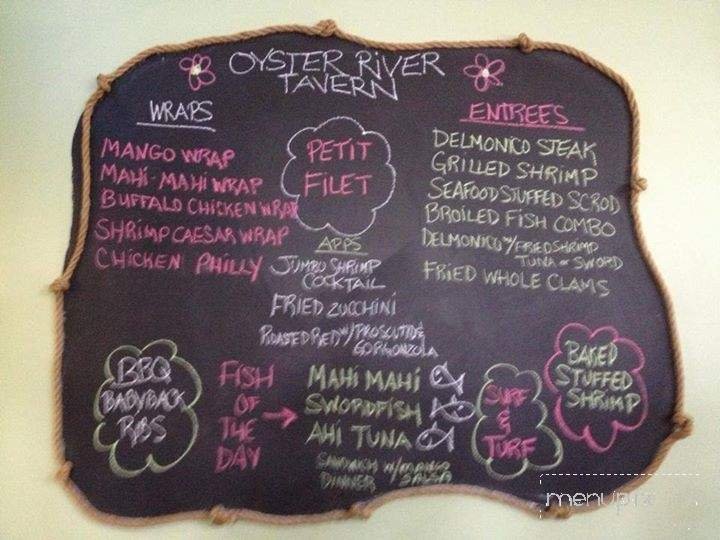 OYSTER RIVER
TAVERN
WRAPS
MANGO WRAP
MAHI-MAHI WRAP
BUFFALO CHICKEN WRAP
SHRIMP CAESAR WRAP
CHICKEN PHILLY
PETIT
FILET
APPS
JUMBO SHRIMP
COCKTAIL
FRIED ZUCCHINI
ROASTED RED W/ PROSCUTIO &
GORGONZOLA
ENTREES
DELMONICO STEAK
GRILLED SHRIMP
SEAFOOD STUFFED SCROD
BROILED FISH COMBO
DELMONICO W/ FRIED SHRIMP
TUNA OR SWORD
FRIED WHOLE CLAMS
BBQ
BABYBACK
RIBS
FISH
OF
THE
DAY
MAHI MAHI
SWORDFISH
AHI TUNA
SANDWICH W/ MANGO
DINNER SALSA
SURF
&
TURF
BAKED
STUFFED
SHRIMP